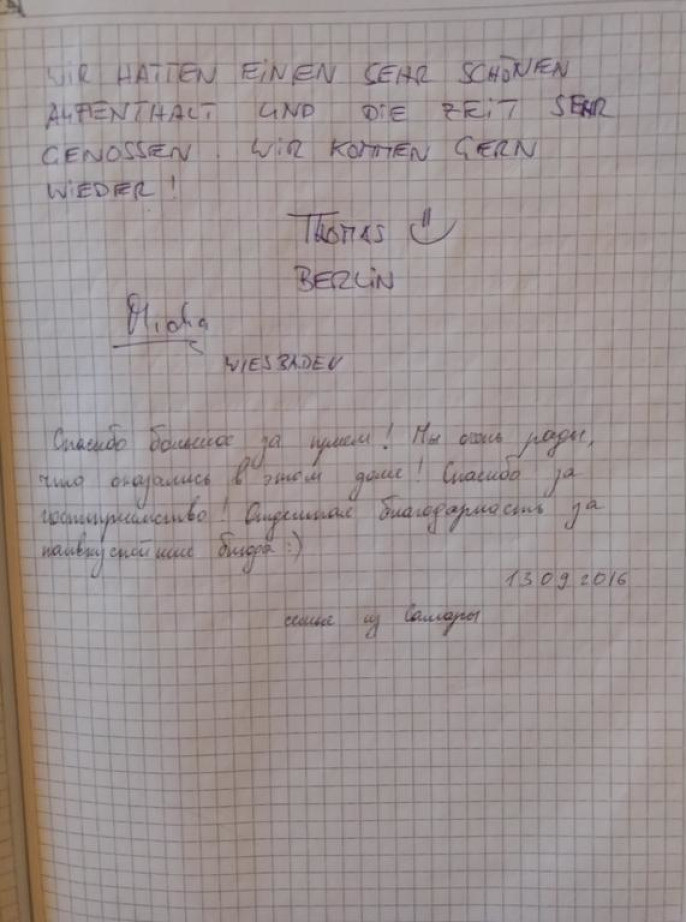 WIR HATTEN EINEN SEHR SCHÖNEN
AUFENTHALT UND DIE ZEIT SEHR
GENOSSEN WIR KOMMEN GERN
WIEDER!
THOMAS
BERLIN
Micha
WIESBADEN
Спасибо большое за прием! Мы очень рады,
что оказались в этом доме! Спасибо за
гостеприимство! Отдельная благодарность за
наивкуснейшие блюда :)
13 09 2016
семья из Самары